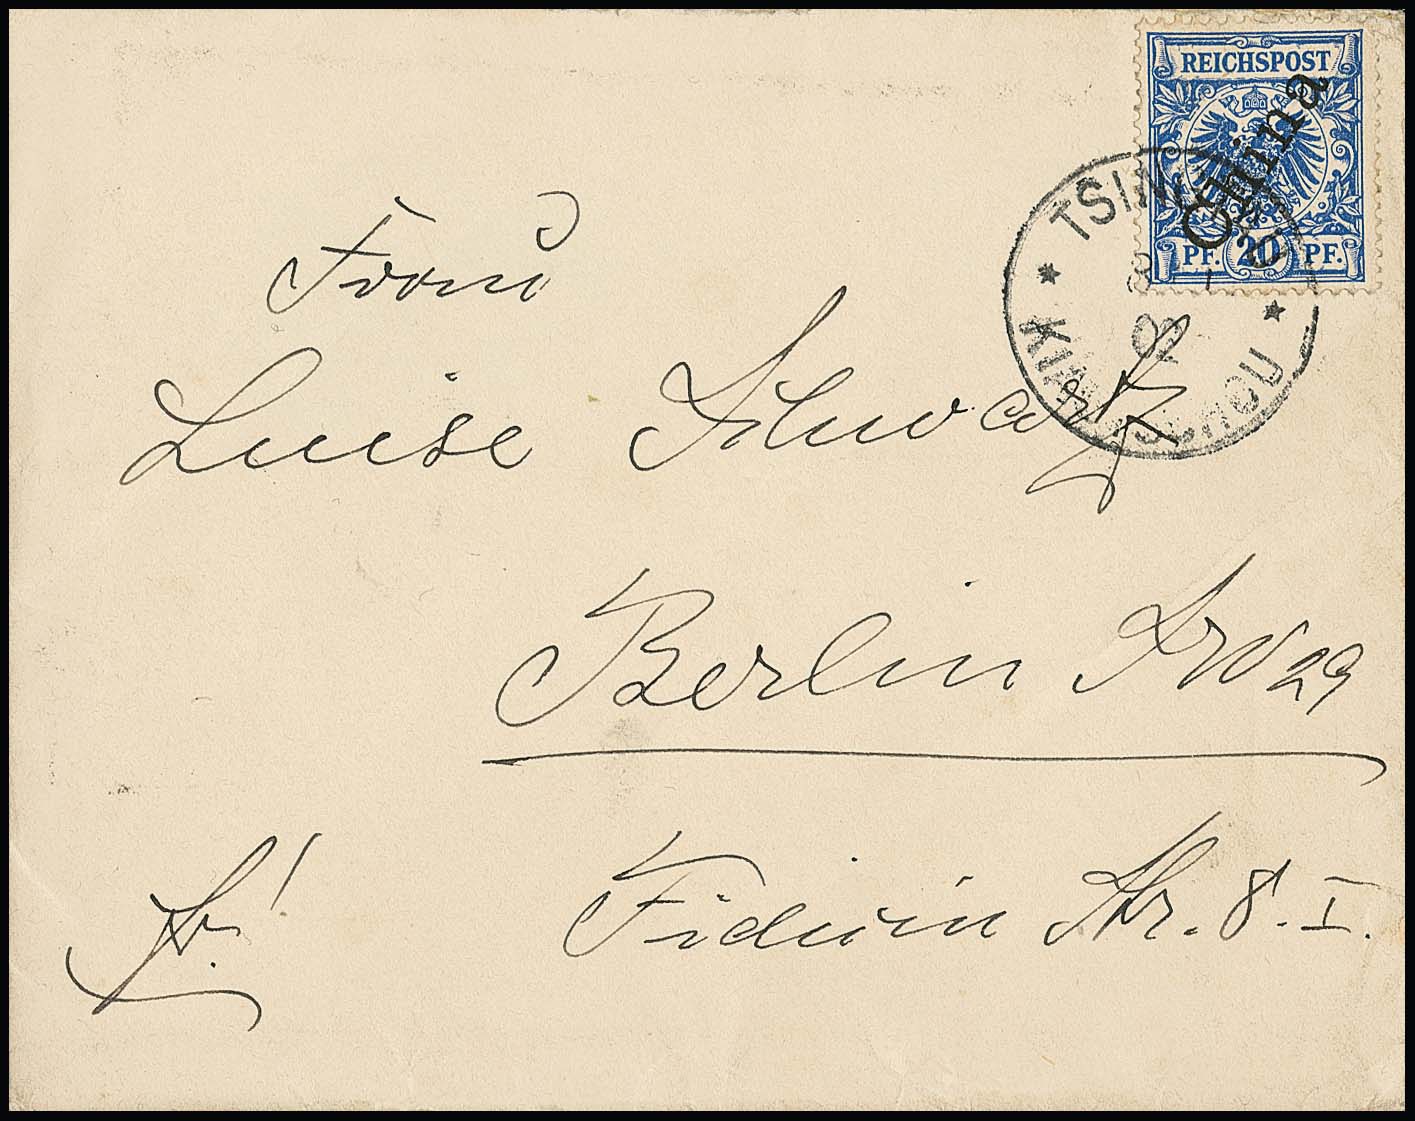 REICHSPOST
China
PF. 20 PF.
TSINTAU
KIAUTSCHOU
Frau
Luise Schwartz
Berlin SW 29
Fidicin Str. 8. I.